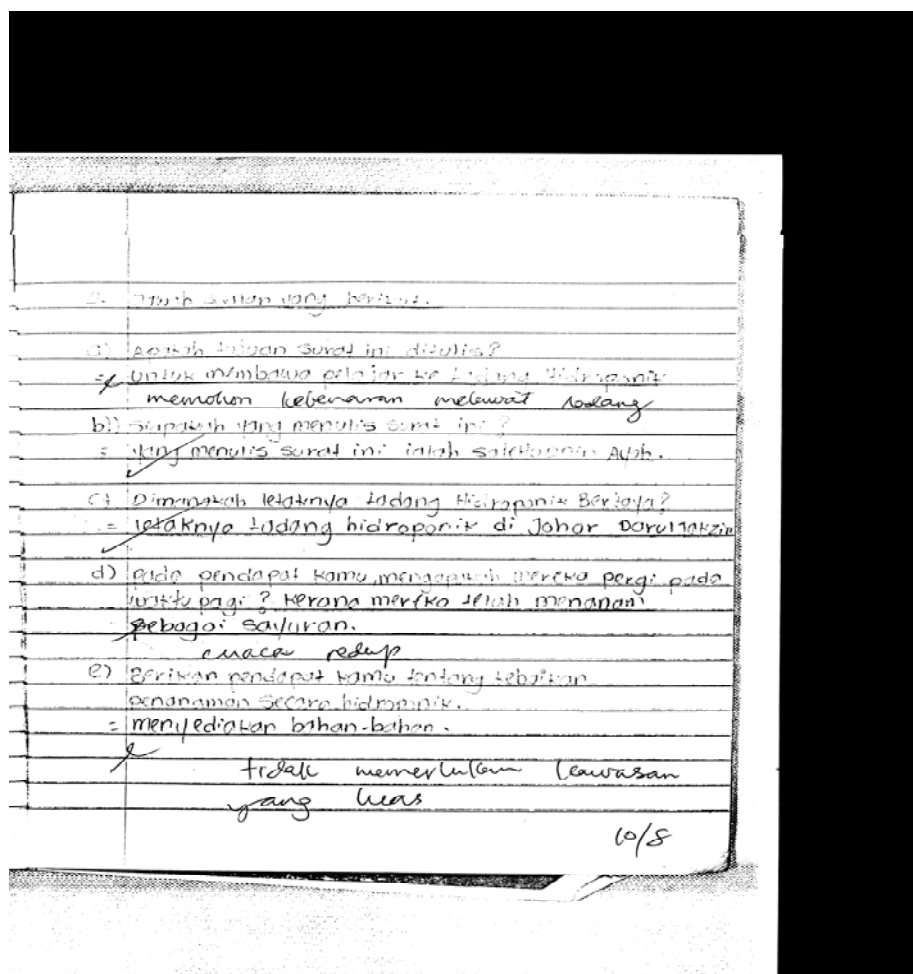 yang
a) Apakah tujuan surat ini ditulis?
= untuk membawa pelajar ke ladang Hidroponik
memohon kebenaran melawat ladang
b)) Siapakah yang menulis surat ini?
= yang menulis surat ini ialah Ayob.
c) Dimanakah letaknya ladang Hidroponik Berjaya?
= letaknya ladang hidroponik di Johor Darul Takzim
d) pada pendapat kamu, mengapakah mereka pergi pada
waktu pagi? kerana mereka telah menanam
sebagai sayuran.
cuaca redup
e) Berikan pendapat kamu tentang kebaikan
penanaman secara hidroponik.
= menyediakan bahan-bahan.
tidak memerlukan kawasan
yang luas
10/8